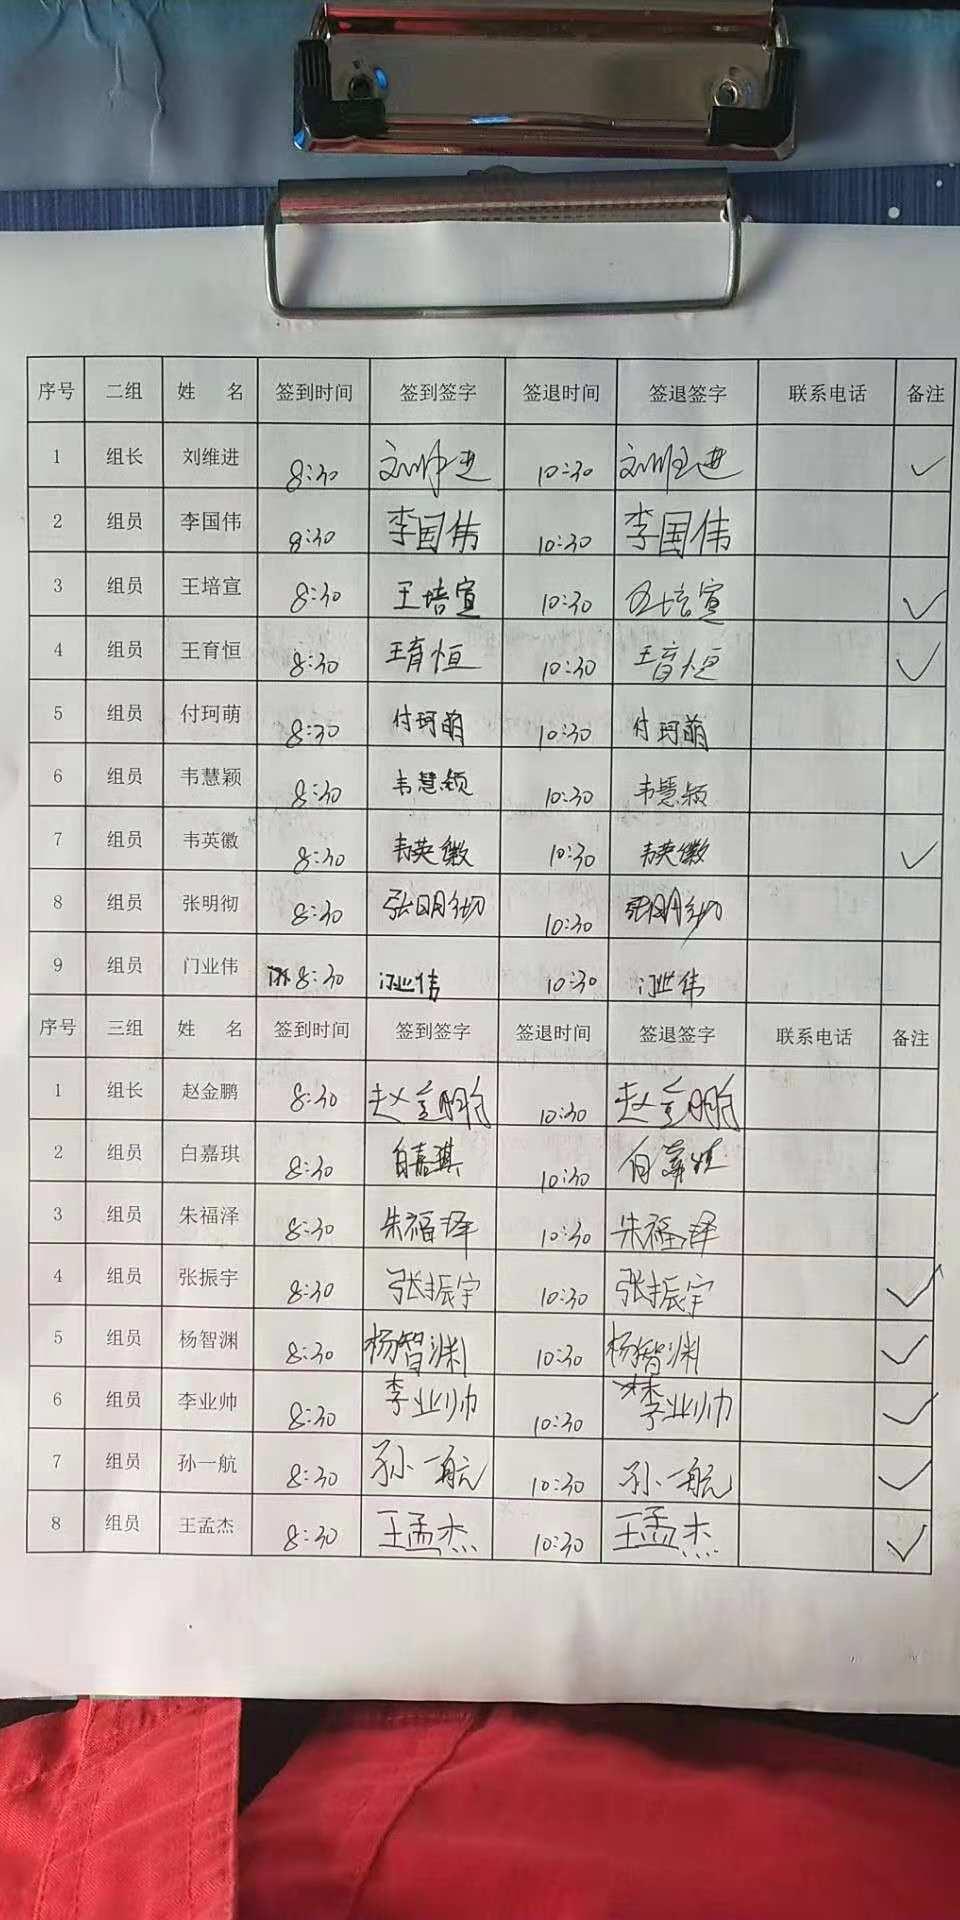 序号 二组 姓 名 签到时间 签到签字 签退时间 签退签字 联系电话 备注
1 组长 刘维进 8:30 刘维进 10:30 刘维进 ✓
2 组员 李国伟 8:30 李国伟 10:30 李国伟
3 组员 王培宣 8:30 王培宣 10:30 王培宣 ✓
4 组员 王育恒 8:30 王育恒 10:30 王育恒 ✓
5 组员 付珂萌 8:30 付珂萌 10:30 付珂萌
6 组员 韦慧颖 8:30 韦慧颖 10:30 韦慧颖
7 组员 韦英徽 8:30 韦英徽 10:30 韦英徽 ✓
8 组员 张明彻 8:30 张明彻 10:30 张明彻
9 组员 门业伟 8:30 门业伟 10:30 门业伟
序号 三组 姓 名 签到时间 签到签字 签退时间 签退签字 联系电话 备注
1 组长 赵金鹏 8:30 赵金鹏 10:30 赵金鹏
2 组员 白嘉琪 8:30 白嘉琪 10:30 白嘉琪
3 组员 朱福泽 8:30 朱福泽 10:30 朱福泽
4 组员 张振宇 8:30 张振宇 10:30 张振宇 ✓
5 组员 杨智渊 8:30 杨智渊 10:30 杨智渊 ✓
6 组员 李业帅 8:30 李业帅 10:30 李业帅 ✓
7 组员 孙一航 8:30 孙一航 10:30 孙一航 ✓
8 组员 王孟杰 8:30 王孟杰 10:30 王孟杰 ✓